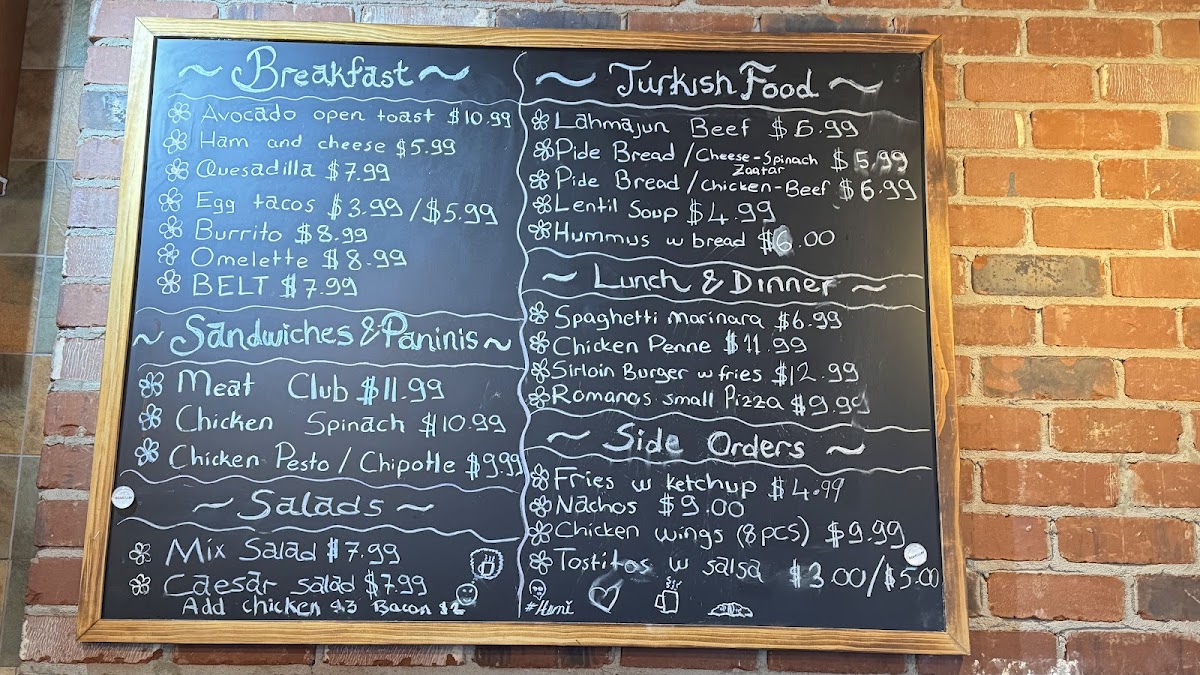 ~ Breakfast ~
Avocado open toast $10.99
Ham and cheese $5.99
Quesadilla $7.99
Egg tacos $3.99/$5.99
Burrito $8.99
Omelette $8.99
BELT $7.99
~ Sandwiches & Paninis ~
Meat Club $11.99
Chicken Spinach $10.99
Chicken Pesto / Chipotle $9.99
~ Salads ~
Mix Salad $7.99
Caesar salad $7.99
Add chicken $3 Bacon $2
~ Turkish Food ~
Lahmajun Beef $6.99
Pide Bread / Cheese-Spinach $5.99
Zaatar
Pide Bread / Chicken-Beef $6.99
Lentil Soup $4.99
Hummus w bread $6.00
~ Lunch & Dinner ~
Spaghetti Marinara $6.99
Chicken Penne $11.99
Sirloin Burger w fries $12.99
Romanos small Pizza $9.99
~ Side Orders ~
Fries w ketchup $4.99
Nachos $9.00
Chicken wings (8pcs) $9.99
Tostitos w salsa $3.00/$5.00